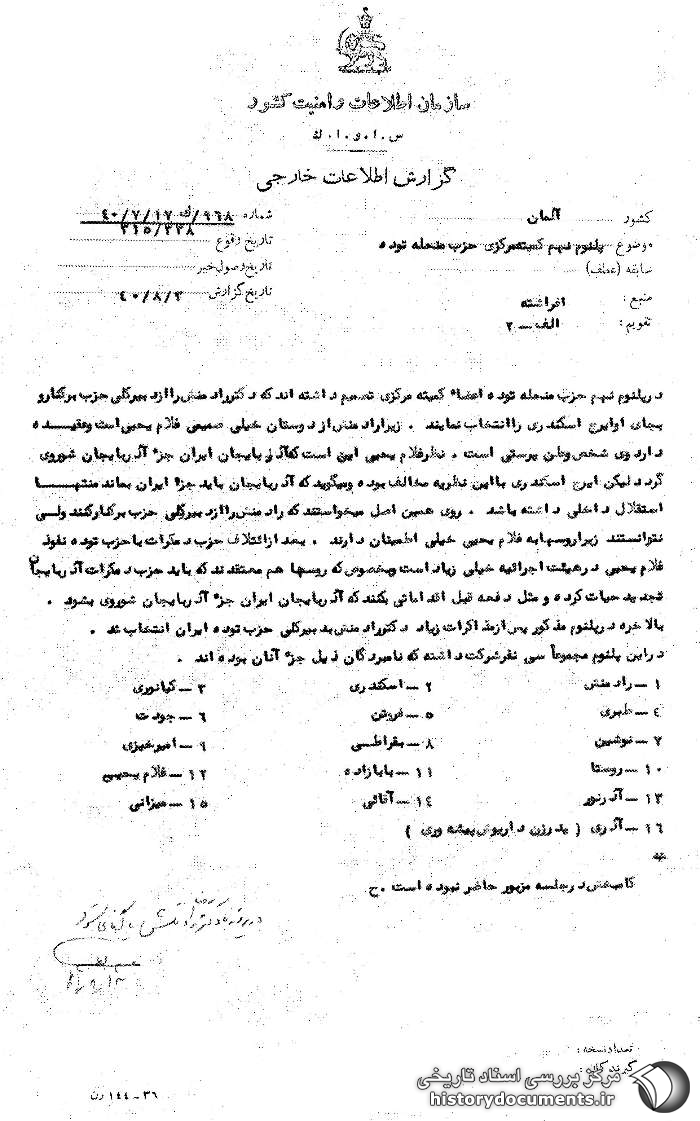 سازمان اطلاعات و امنیت کشور
س.ا.و.ا.ک
گزارش اطلاعات خارجی
کشور آلمان
موضوع پلنوم نهم کمیته مرکزی حزب منحله توده
سابقه (عطف)
منبع: افراشته
تقویم: الف ـ ۲
شماره ۹۶۸/ک ۴۰/۷/۱۷
۳۱۵/۳۳۸
تاریخ وقوع
تاریخ وصول خبر
تاریخ گزارش ۴۰/۸/۳
در پلنوم نهم حزب منحله توده اعضاء کمیته مرکزی تصمیم داشته اند که دکتر رادمنش را از دبیرکلی حزب برکنار و
بجای او ایرج اسکندری را انتخاب نمایند . زیرا رادمنش از دوستان خیلی صمیمی غلام یحیی است و عقیده
دارد وی شخص وطن پرستی است . نظر غلام یحیی این است که آذربایجان ایران جزء آذربایجان شوروی
گردد لیکن ایرج اسکندری با این نظریه مخالف بوده و میگوید که آذربایجان باید جزء ایران بماند منتها
استقلال داخلی داشته باشد . روی همین اصل میخواستند که رادمنش را از دبیرکلی حزب برکنار کنند ولی
نتوانستند زیرا روسها به غلام یحیی خیلی اطمینان دارند . بعد از ائتلاف حزب دمکرات با حزب توده نفوذ
غلام یحیی در هیئت اجرائیه خیلی زیاد است و بخصوص که روسها هم معتقدند که باید حزب دمکرات آذربایجان
تجدید حیات کرده و مثل دفعه قبل اقداماتی بکنند که آذربایجان ایران جزء آذربایجان شوروی بشود .
بالاخره در پلنوم مذکور پس از مذاکرات زیاد دکتر رادمنش بدبیرکلی حزب توده ایران انتخاب شد .
در این پلنوم مجموعاً سی نفر شرکت داشته که نامبردگان ذیل جزء آنان بوده اند .
۱ ـ رادمنش ۲ ـ اسکندری ۳ ـ کیانوری
۴ ـ طبری ۵ ـ فروتن ۶ ـ جودت
۷ ـ نوشین ۸ ـ بقراطی ۹ ـ امیرخیزی
۱۰ ـ روستا ۱۱ ـ بابازاده ۱۲ ـ غلام یحیی
۱۳ ـ آذرنور ۱۴ ـ آقائی ۱۵ ـ میزانی
۱۶ ـ آذری ( پدرزن داریوش پیشه وری )
کامبخش در جلسه مزبور حاضر نبوده است .ح
تعداد نسخه :
گیرندگان :
۳۶ ـ ۱۴۴ دن
مرکز بررسی اسناد تاریخی
historydocuments.ir